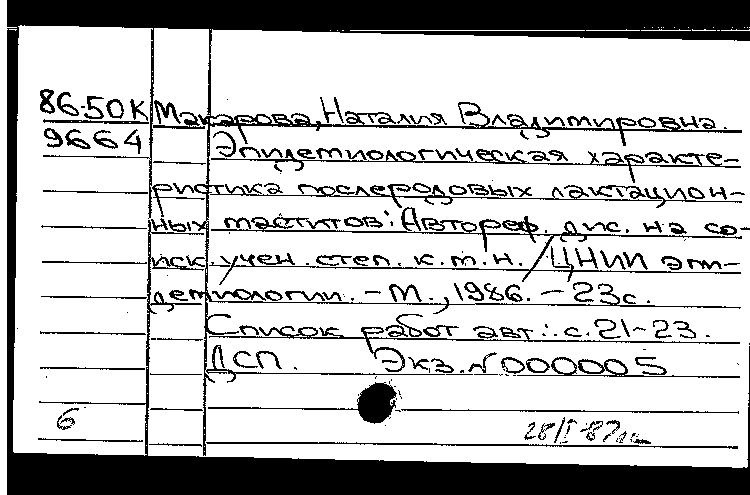 86-50К Макарова, Наталия Владимировна.
9664 Эпидемиологическая характе-
ристика послеродовых лактацион-
ных маститов: Автореф. дис. на со-
иск. учен. степ. к.м.н. / ЦНИИ эпи-
демиологии. - М., 1986. - 23с.
Список работ авт.: с. 21-23.
ДСП. Экз. N 000005
6
28/I-87